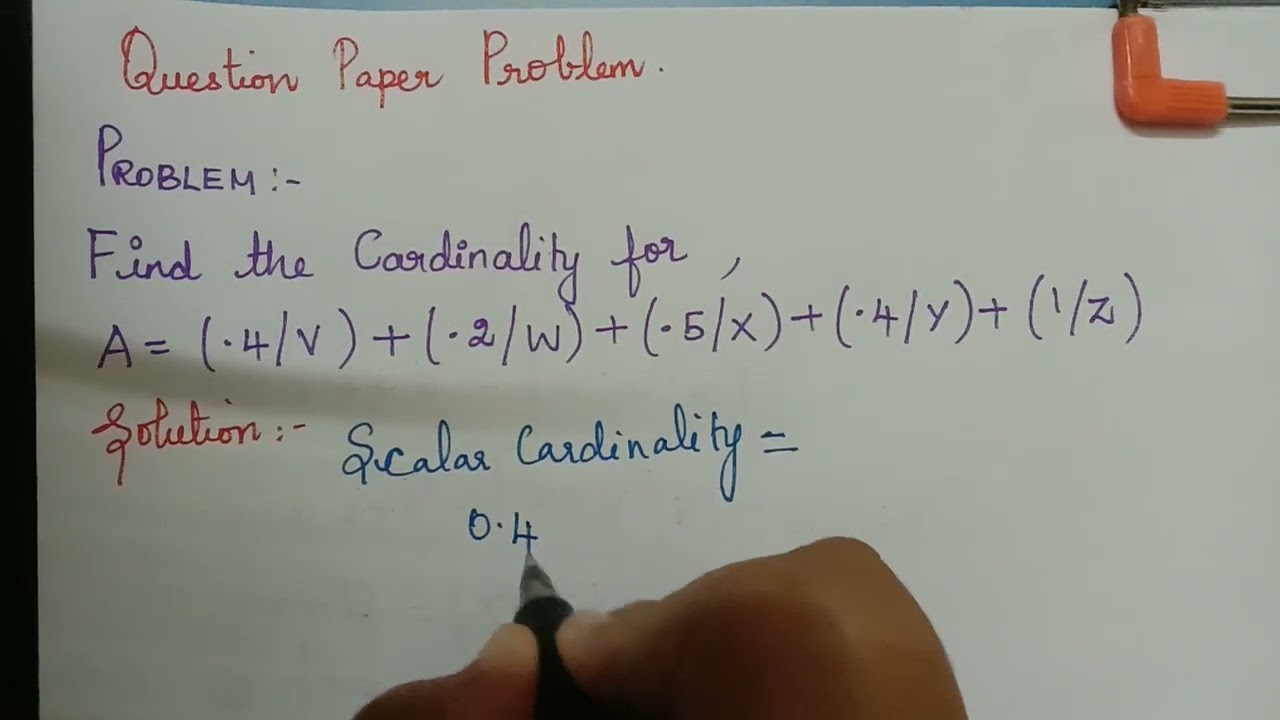 Question Paper Problem.
PROBLEM :-
Find the Cardinality for,
A = (.4/V) + (.2/W) + (.5/X) + (.4/Y) + (1/Z)
Solution :- Scalar Cardinality =
0.4